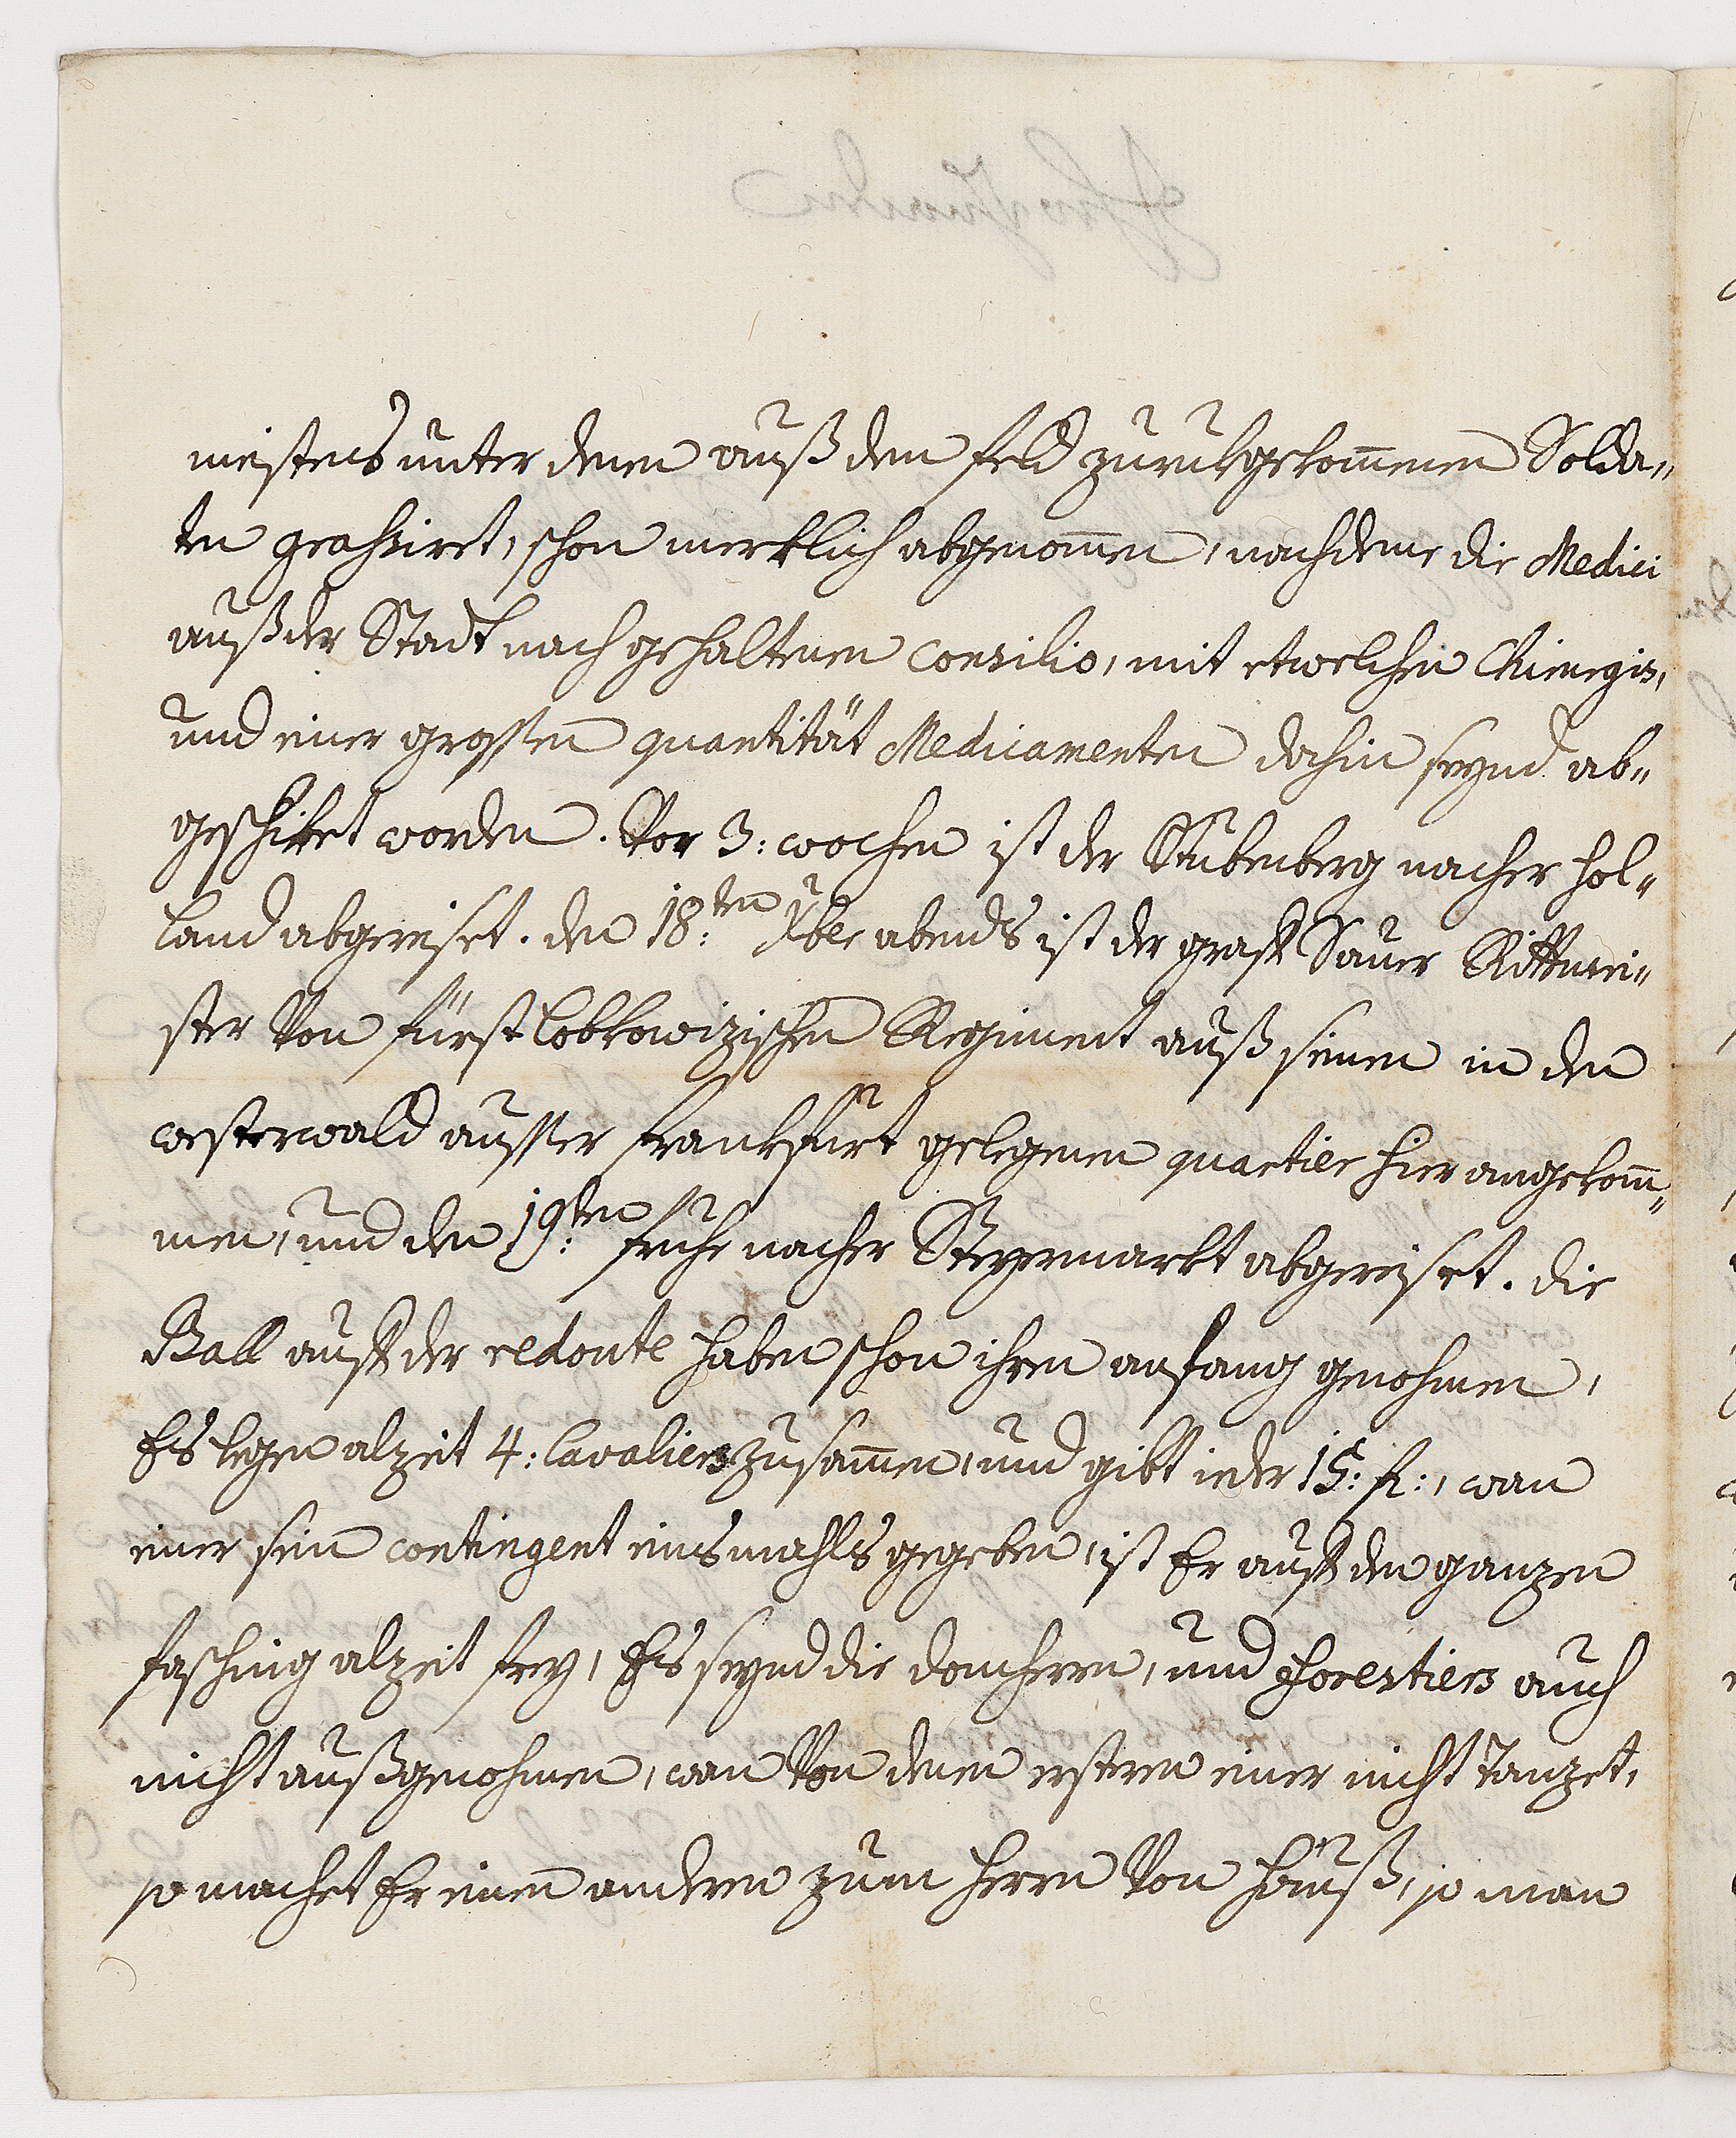 meistens unter denen auß dem feld zuruckgekom̄enen Solda„
ten grassiret, schon mercklich abgenom̄en, nachdeme die Medici
auß der Stadt nach gehaltenen Consilio, mit etwelchen Chirurgis,
und einer grossen quantität Medicamenten dahin seynd ab„
geschiket worden. Vor 3: wochen ist der Stubenberg nacher Hol„
land abgereiset. den 18:ten Xber abends ist der graff Sauer Rittmei„
ster Von fürst lobkowizischen Regiment auß seinen in den
westerwald ausser franckfurt gelegenen quartier hier angekom̄„
men, und den 19:ten fruhe nacher Steyermarkt abgereiset. die
Ball auff der redoute haben schon ihren anfang genohmen,
Es legen alzeit 4: Cavaliers zusam̄en, und gibt ieder 15: fl:, wan
einer sein contingent einsmahls gegeben, ist Er auff den ganzen
fasching alzeit frey, Es seynd die domherren, und forestiers auch
nicht außgenohmen, wan Von denen ersteren einer nicht Tanzet,
so machet Er einen anderen zum herrn Von Hauß, so man